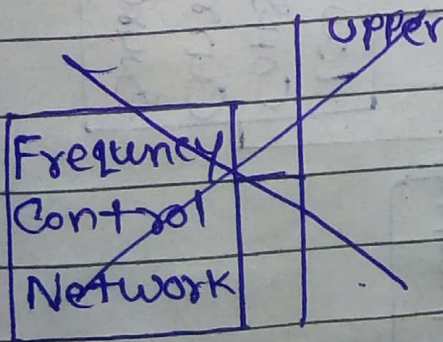 Upper
Frequncy
Control
Network